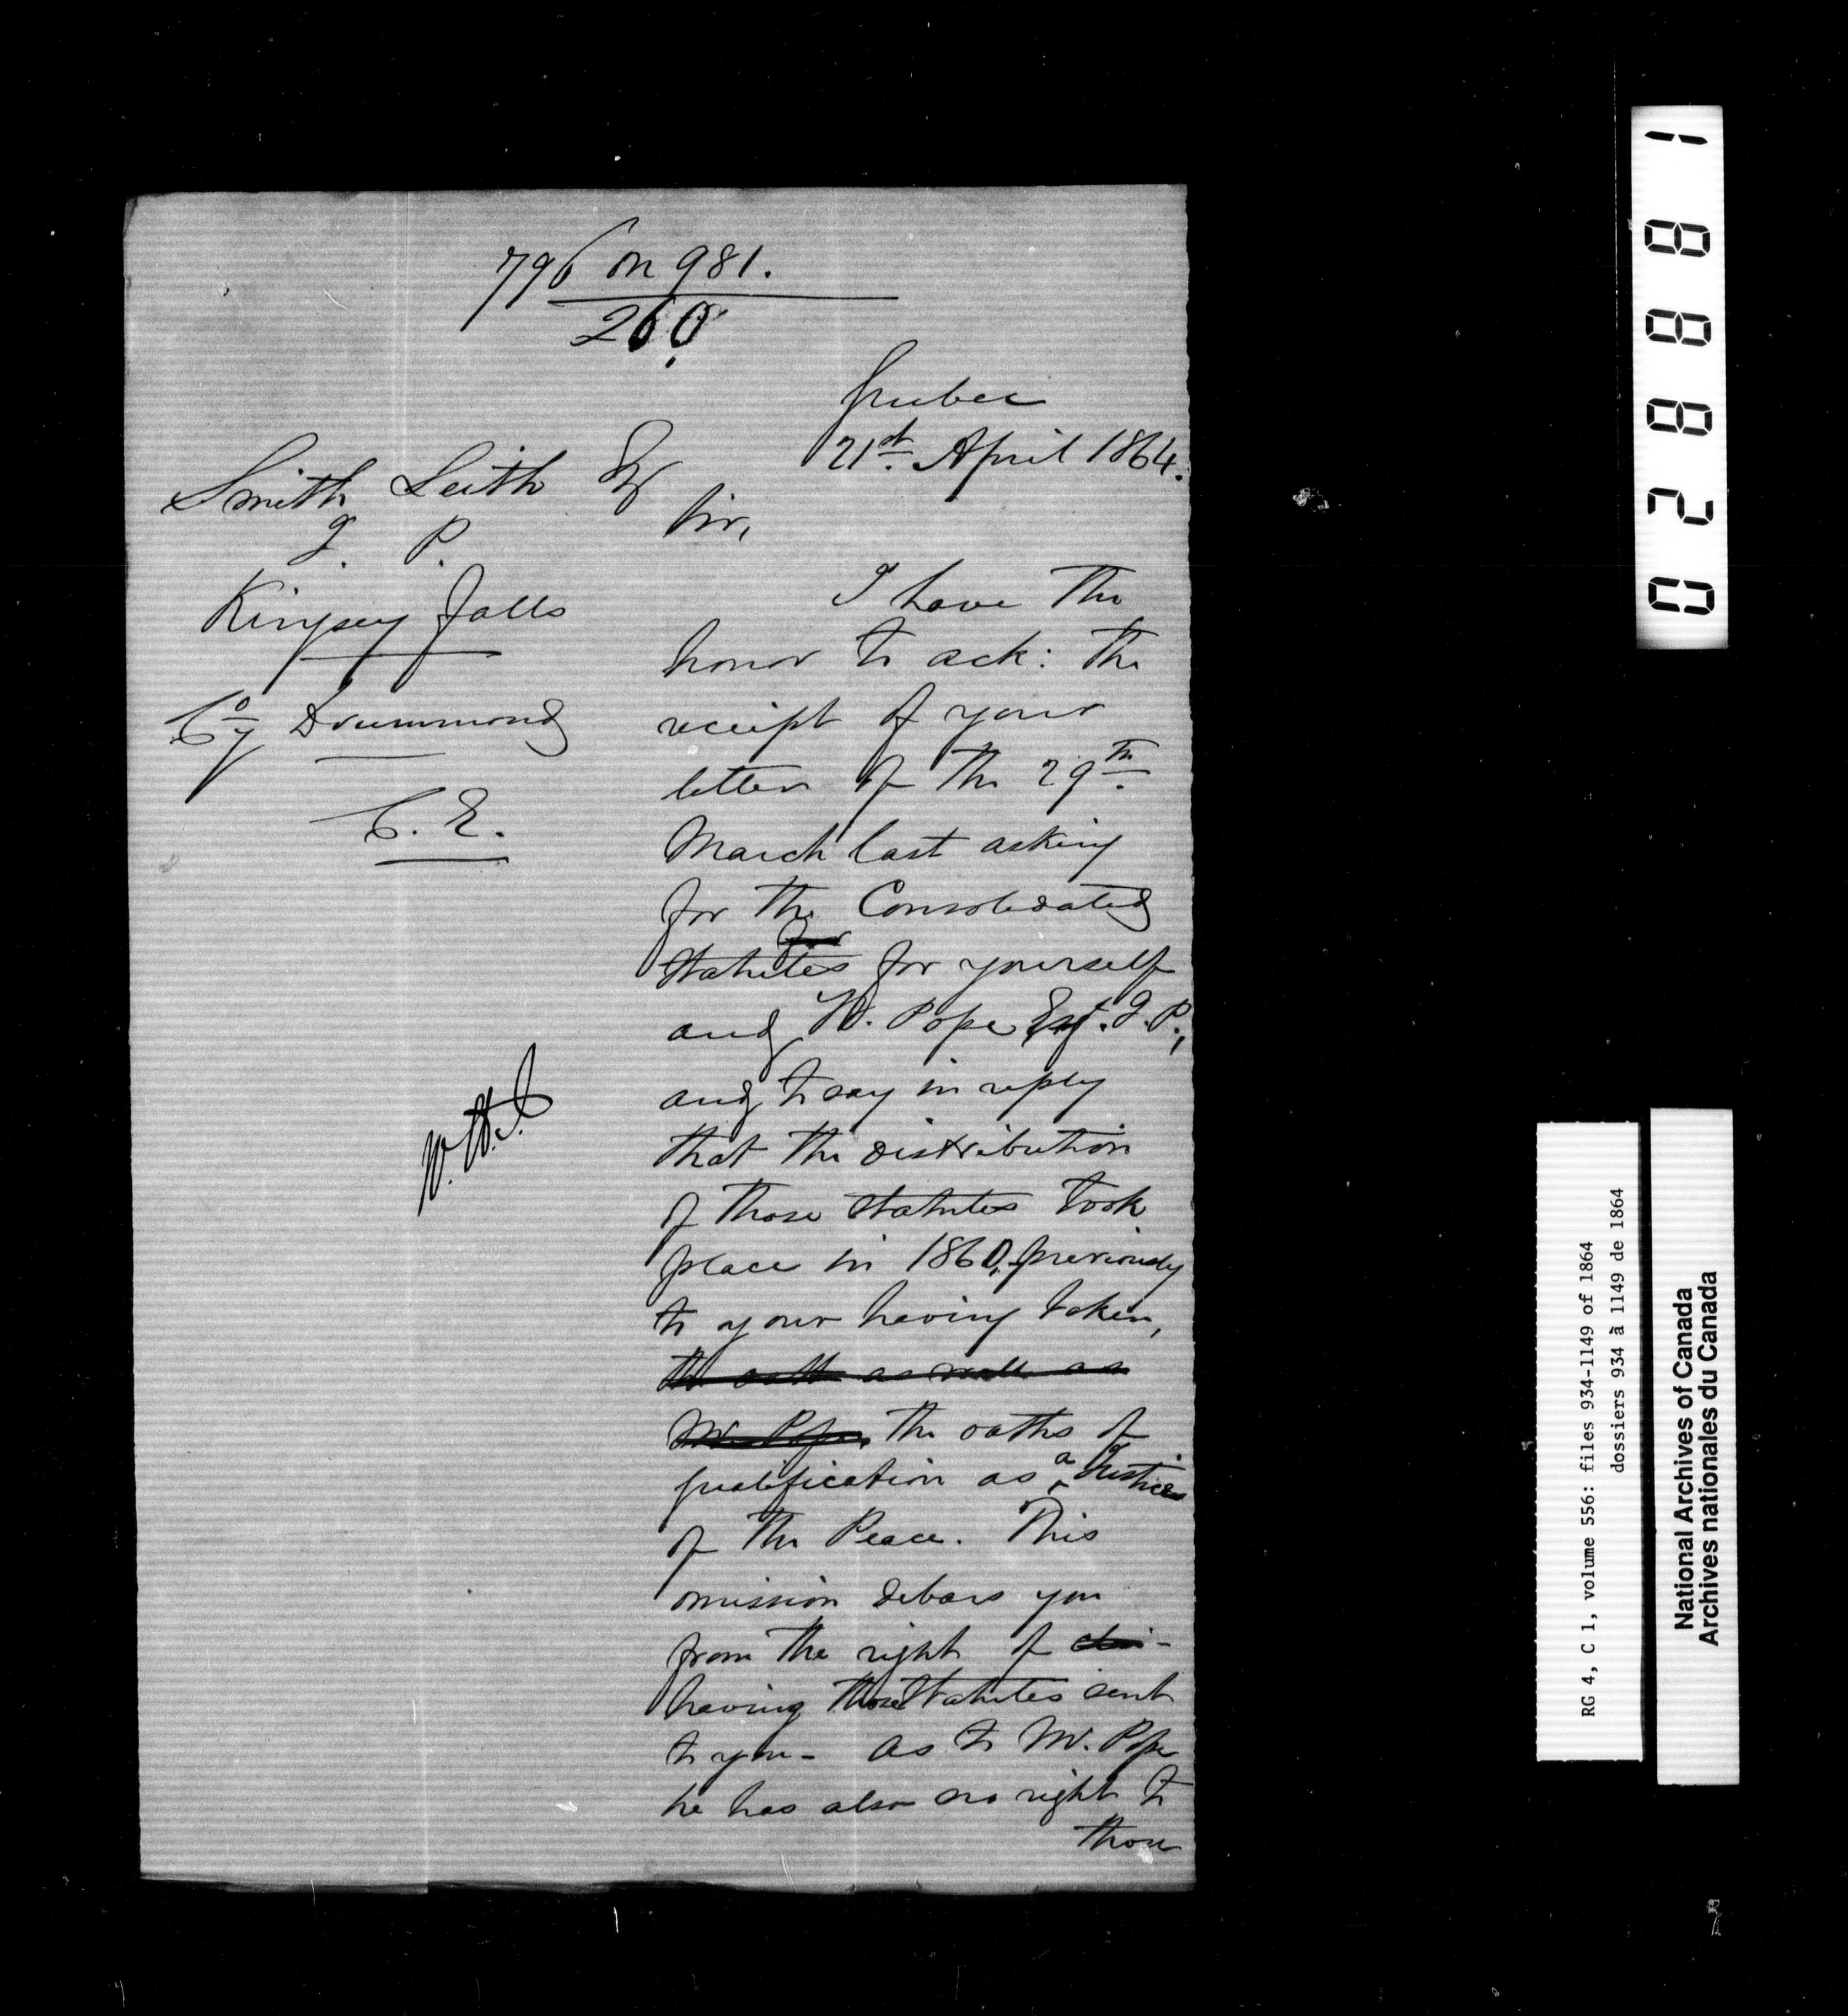 796 on 981.
260
Quebec
21st. April 1864.
Smith Leith Esq
J. P.
Kingsey Falls
Coy Drummond
C. E.
W.H.J.
Sir,
I have the
honor to ack: the
receipt of your
letter of the 29th.
March last asking
for the Consolidated
for
Statutes for yourself
and W. Pope Esq. J. P.,
and to say in reply
that the distribution
of those Statutes took
place in 1860, previously
to your having taken,
the oath as well as
Mr. Pope, the oaths of
qualification as a Justice
of the Peace. This
omission debars you
from the right of
having those Statutes sent
to you - As to Mr. Pope
he has also no right to
those
028881
RG 4, C 1, volume 556: files 934-1149 of 1864
dossiers 934 à 1149 de 1864
National Archives of Canada
Archives nationales du Canada